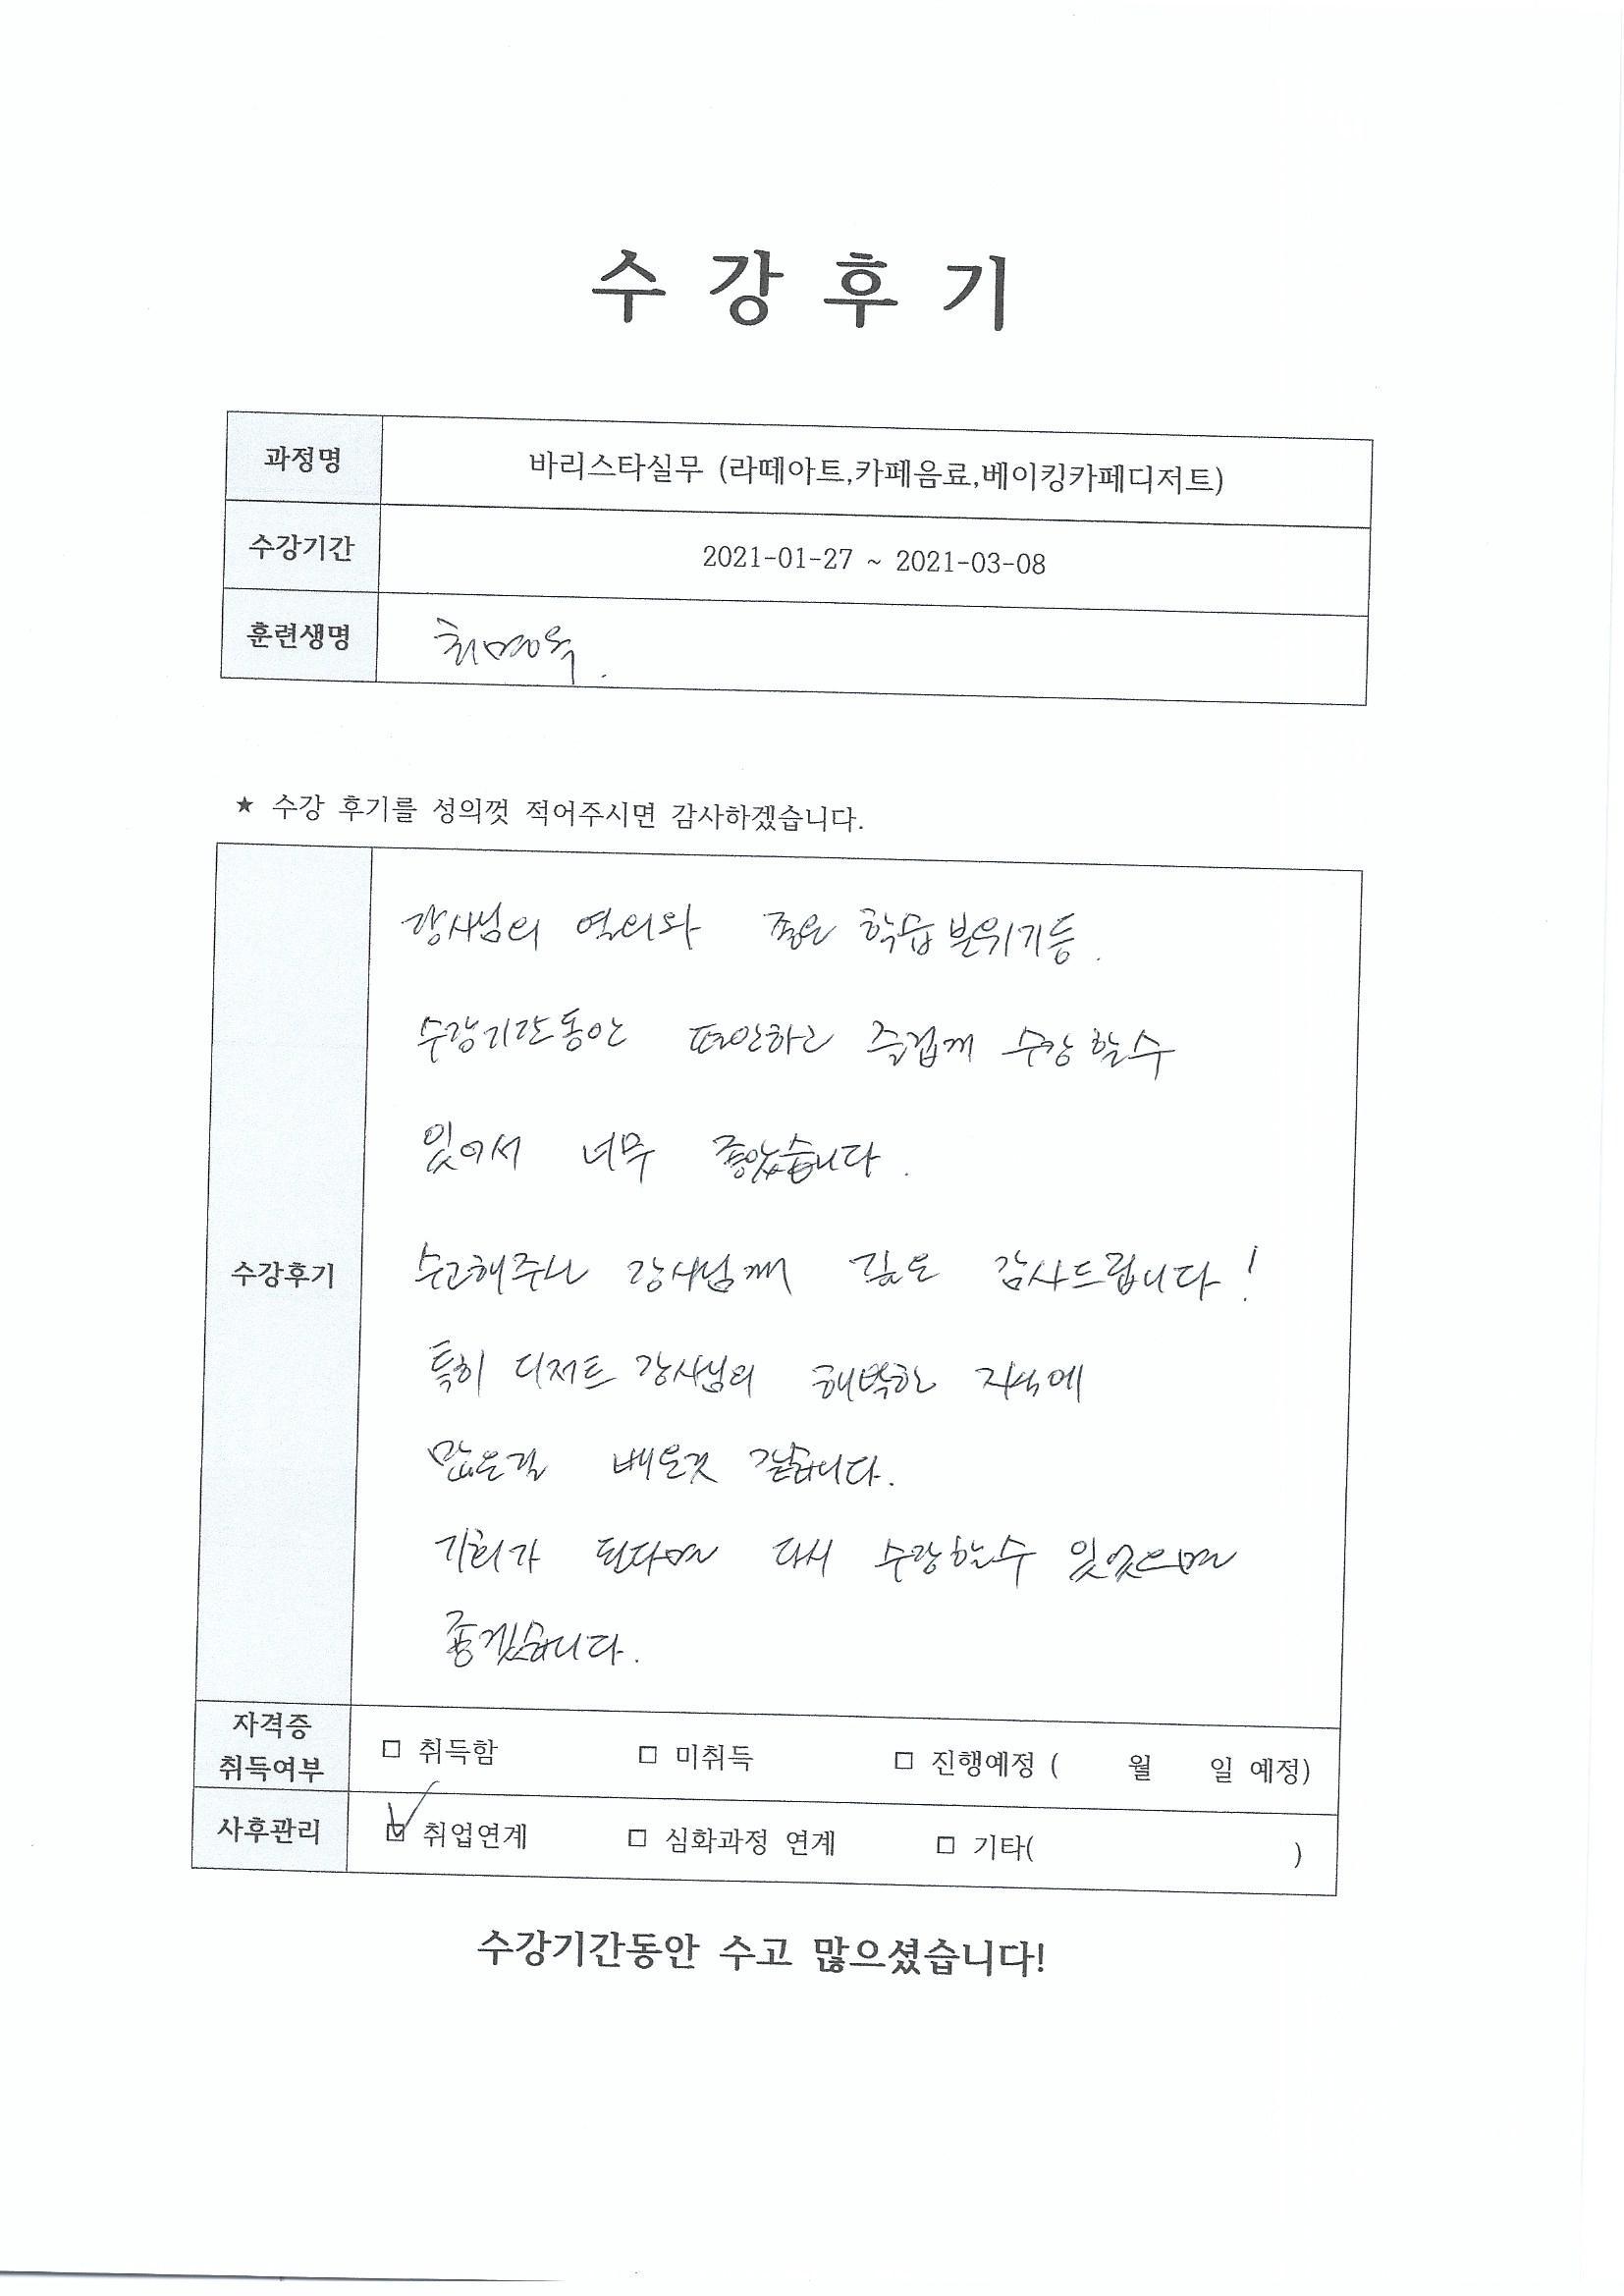 수 강 후 기
과정명 바리스타실무 (라떼아트,카페음료,베이킹카페디저트)
수강기간 2021-01-27 ~ 2021-03-08
훈련생명 최명옥.
★ 수강 후기를 성의껏 적어주시면 감사하겠습니다.
수강후기
강사님의 열의와 좋은 학습 분위기등.
수강기간동안 편안하고 즐겁게 수강 할수
있어서 너무 좋았습니다.
수고해주신 강사님께 깊은 감사드립니다!
특히 디저트 강사님의 해박한 지식에
많은걸 배운것 같습니다.
기회가 된다면 다시 수강할수 있었으면
좋겠습니다.
자격증
취득여부
□ 취득함 □ 미취득 □ 진행예정 ( 월 일 예정)
사후관리 ☑ 취업연계 □ 심화과정 연계 □ 기타( )
수강기간동안 수고 많으셨습니다!